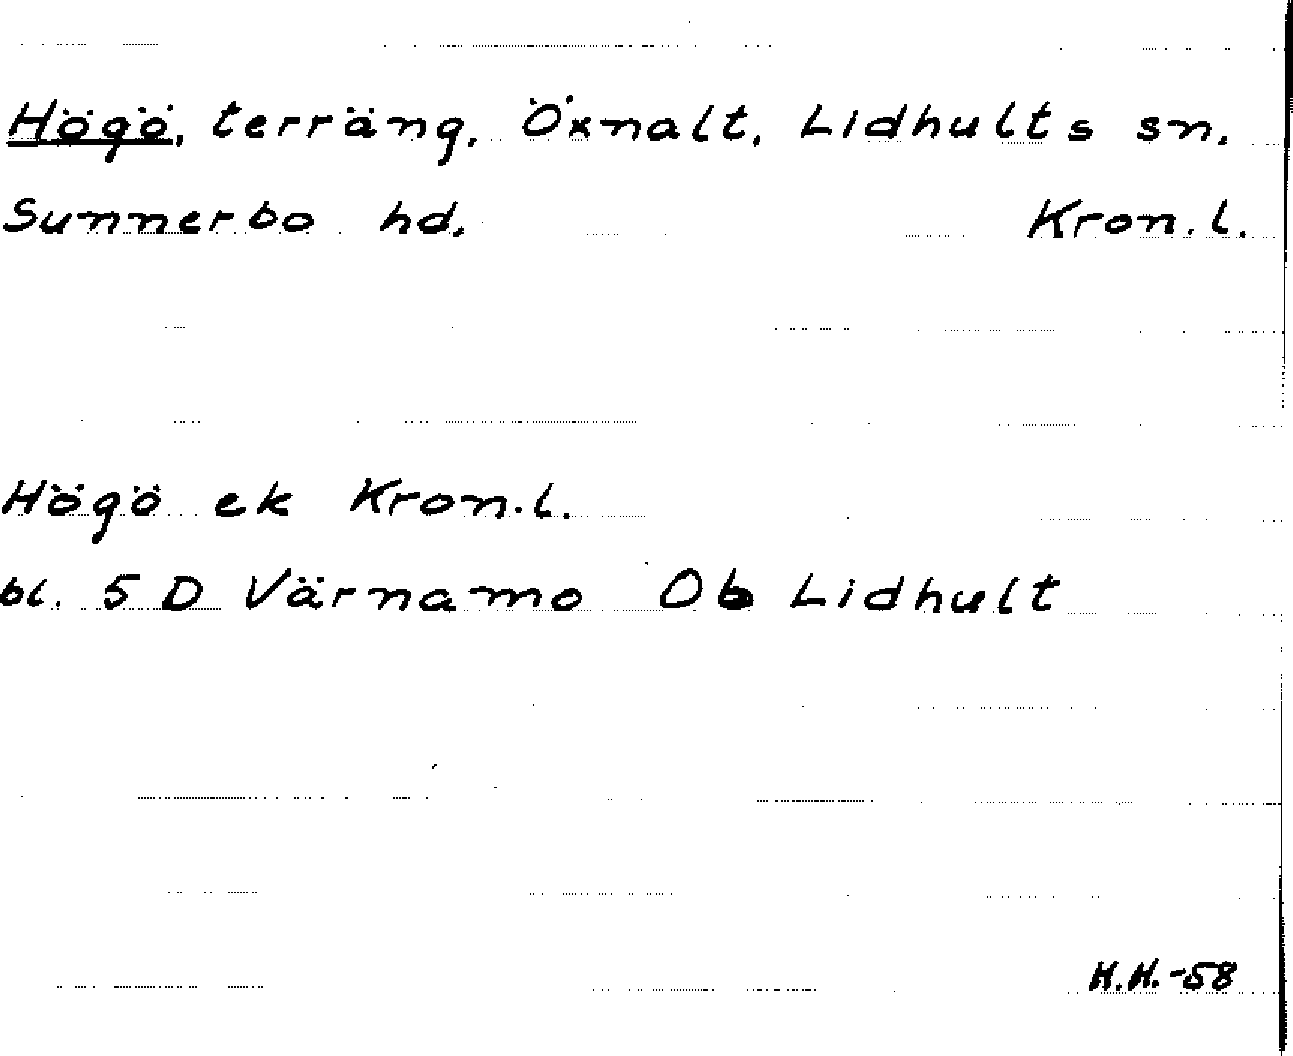 Högö, terräng, Öxnalt, Lidhults sn.
Sunnerbo hd. Kron.l.
Högö ek Kron.l.
bl. 5 D Värnamo Ob Lidhult
H.H.-58